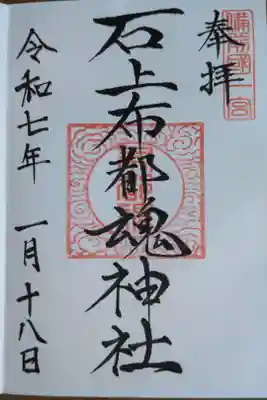 備前國一宮
奉拝
石上布都魂神社
令和七年 一月十八日